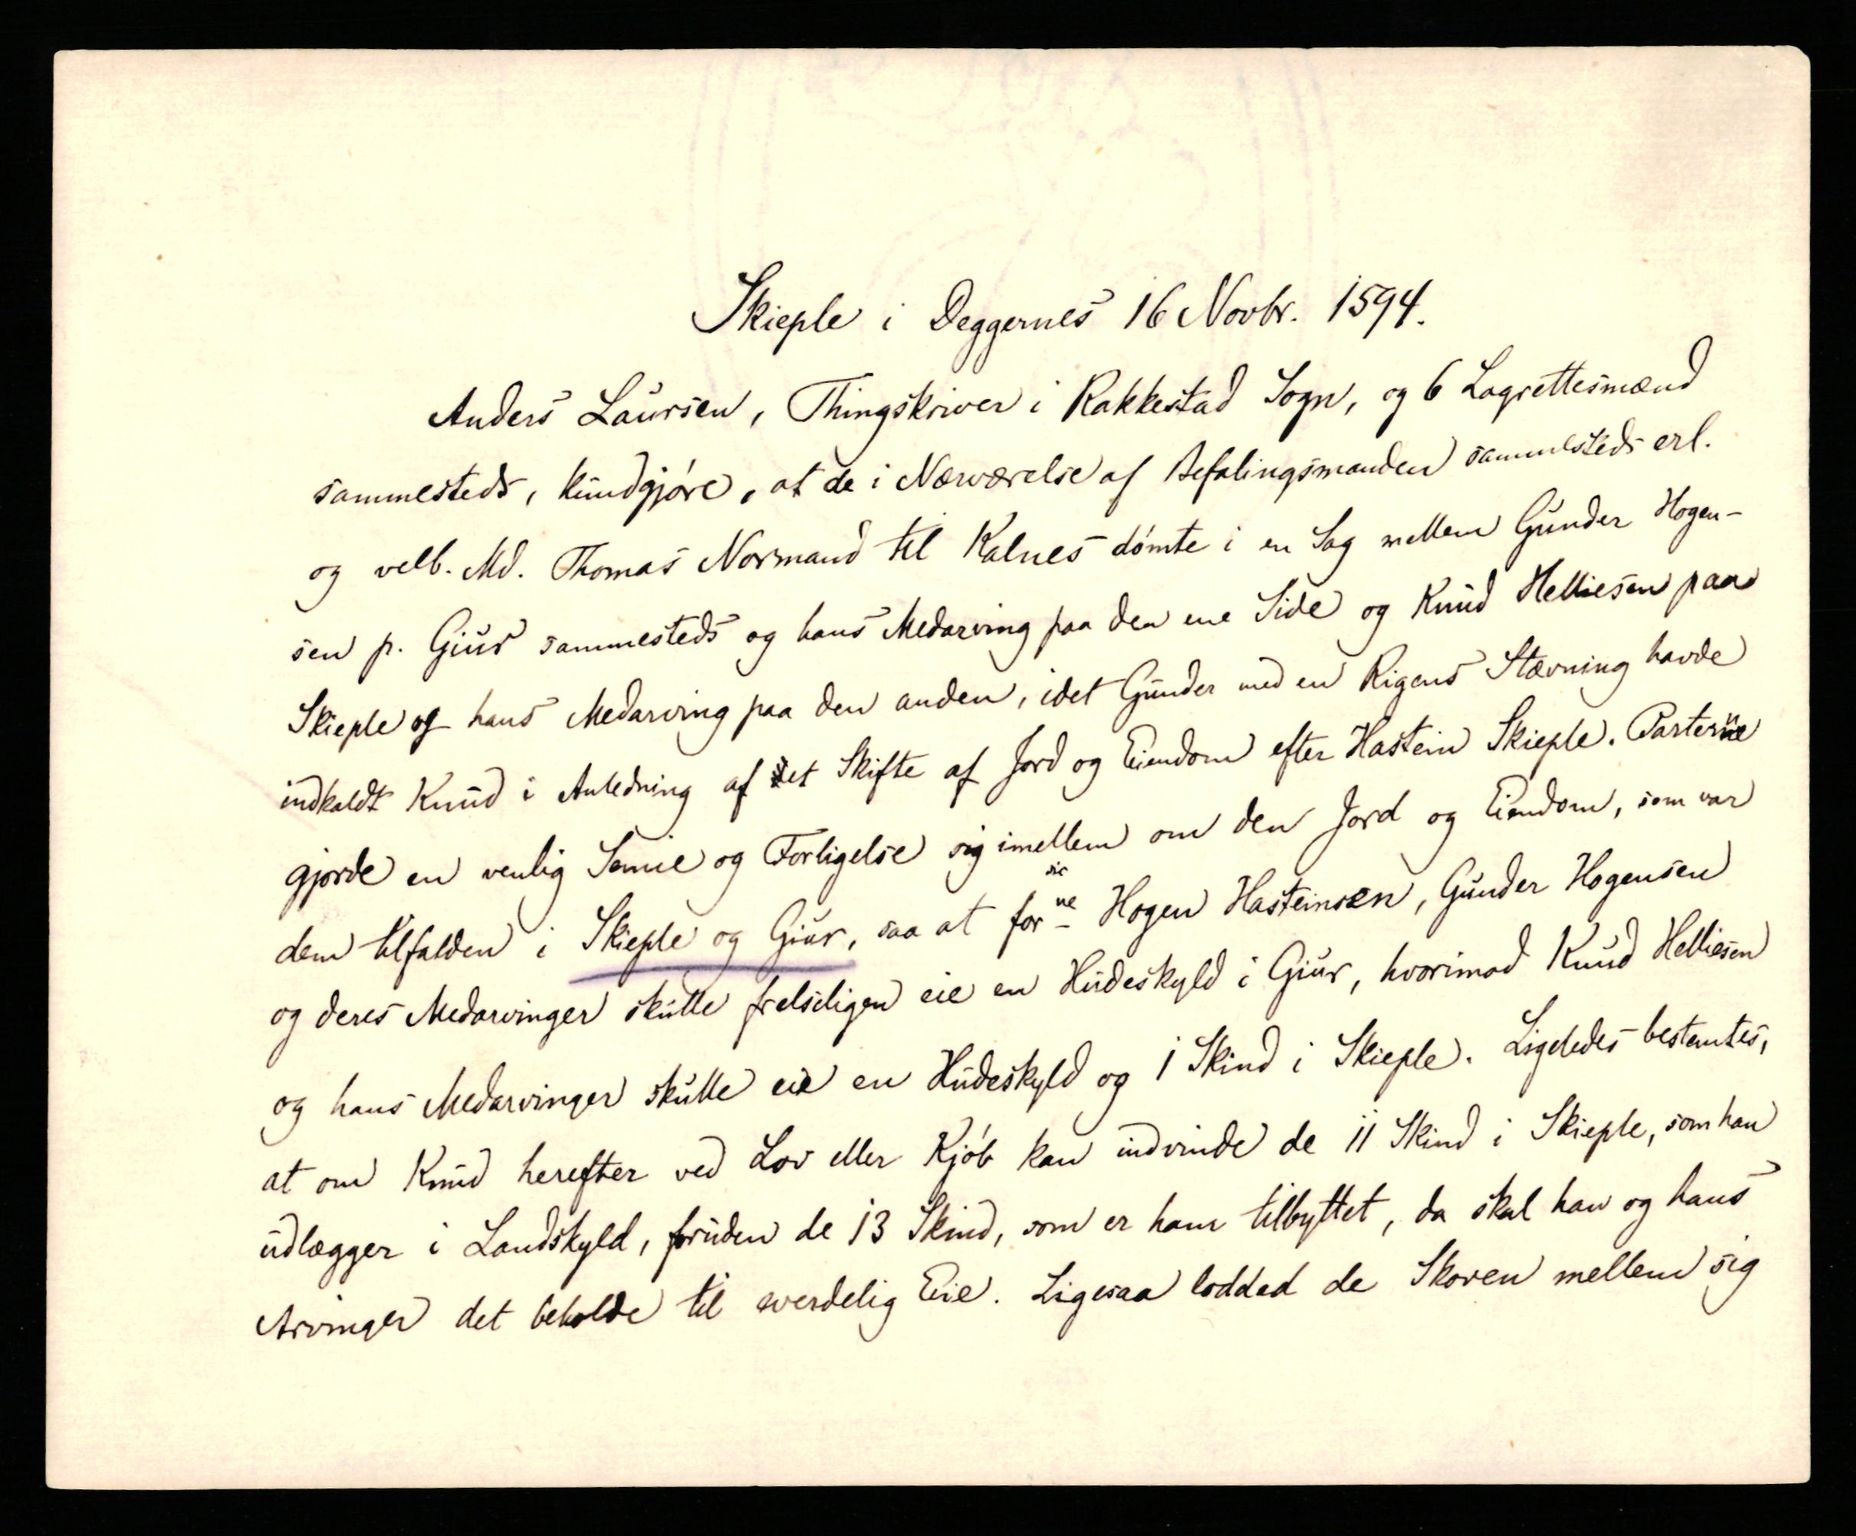 Skieple i Deggernes 16 Novbr. 1594.
Anders Laursen, Thingskriver i Rakkestad Sogn, og 6 Lagrettesmænd
sammesteds, kundgjøre, at de i Nærværelse af Befalingsmanden sammesteds erl.
og velb. Md. Thomas Normand til Kalnes dømte i en Sag mellem Gunder Hogen-
sen p. Giur sammesteds og hans Medarving paa den ene Side og Knud Helliesen paa
Skieple og hans Medarving paa den anden, idet Gunder med en Rigens Stævning havde
indkaldt Knud i Anledning af et Skifte af Jord og Eiendom efter Hastein Skieple. Parterne
gjorde en venlig Semie og Forligelse sig imellem om den Jord og Eiendom, som var
dem tilfalden i Skieple og Giur, saa at for ne sic Hogen Hasteinsen, Gunder Hogensen
og deres Medarvinger skulle frelseligen eie en Hudeskyld i Giur, hvorimod Knud Helliesen
og hans Medarvinger skulle eie en Hudeskyld og 1 Skind i Skieple. Ligeledes bestemtes,
at om Knud herefter ved Lov eller Kjøb kan indvinde de 11 Skind i Skieple, som han
udlægger i Landskyld, foruden de 13 Skind, som er ham tilbyttet, da skal han og hans
Arvinger det beholde til everdelig Eie. Ligesaa lodded de Skoven mellem sig